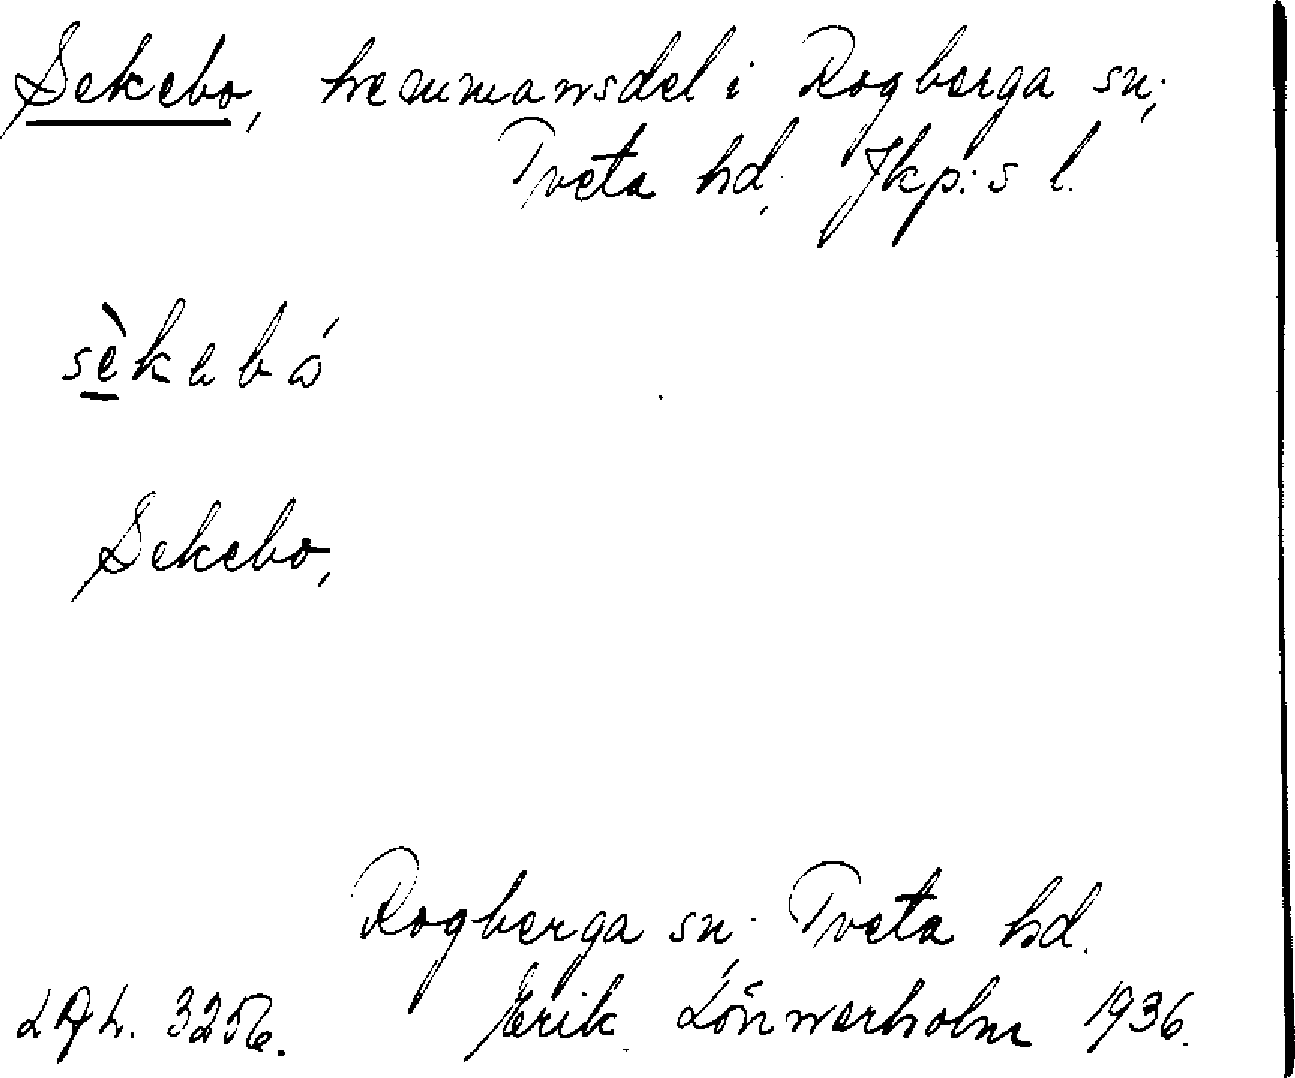 Sekebo, hemmansdel i Rogberga sn;
Tveta hd. Jkp:s l.
sèkebó
Sekebo,
Rogberga sn; Tveta hd.
Erik Lönnerholm 1936.
3256.